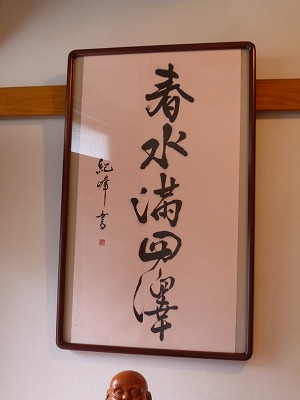 春水満四澤
紀峰書